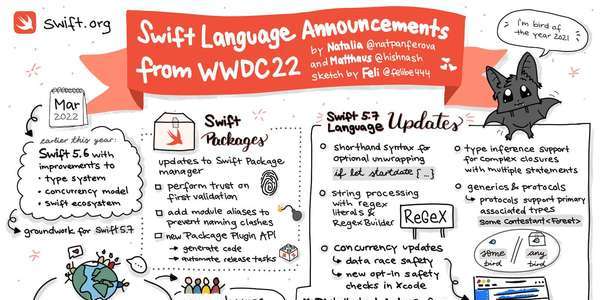 Swift.org
Swift Language Announcements
from WWDC22
by Natalia @natpanferova
and Matthaus @hishnash
sketch by Feli @felibe444
I'm bird of
the year 2021
Mar
2022
earlier this year:
Swift 5.6 with
improvements to
type system
concurrency model
swift ecosystem
groundwork for Swift 5.7
Swift
Packages
updates to Swift Package
manager
perform trust on
first validation
add module aliases to
prevent naming clashes
new Package Plugin API
→ generate code
→ automate release tasks
Swift 5.7
Language Updates
shorthand syntax for
optional unwrapping
if let startdate {...}
string processing
with regex
literals &
RegexBuilder
RegEx
concurrency updates
→ data race safety
→ new opt-in safety
checks in Xcode
type inference support
for complex closures
with multiple statements
generics & protocols
→ protocols support primary
associated types
some Contestant<Forest>
some
bird
any
bird